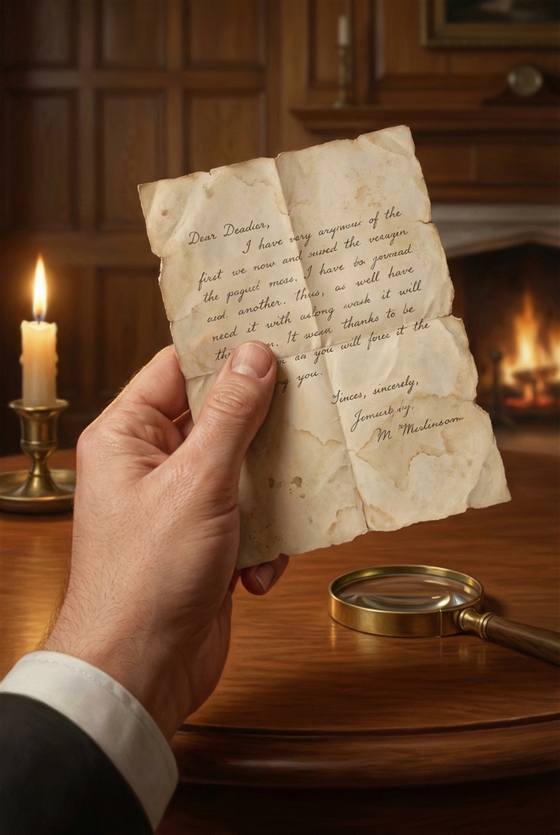 Dear Deadier,
I have very of the
first we now and sured the verazen
the paguet mass. I have bo jovered
and another. Thus, as well have
need it with aslong wask it will
It wean thanks to be
as you will forez it the
you.
Sinces, sincerely,
M Merlinson